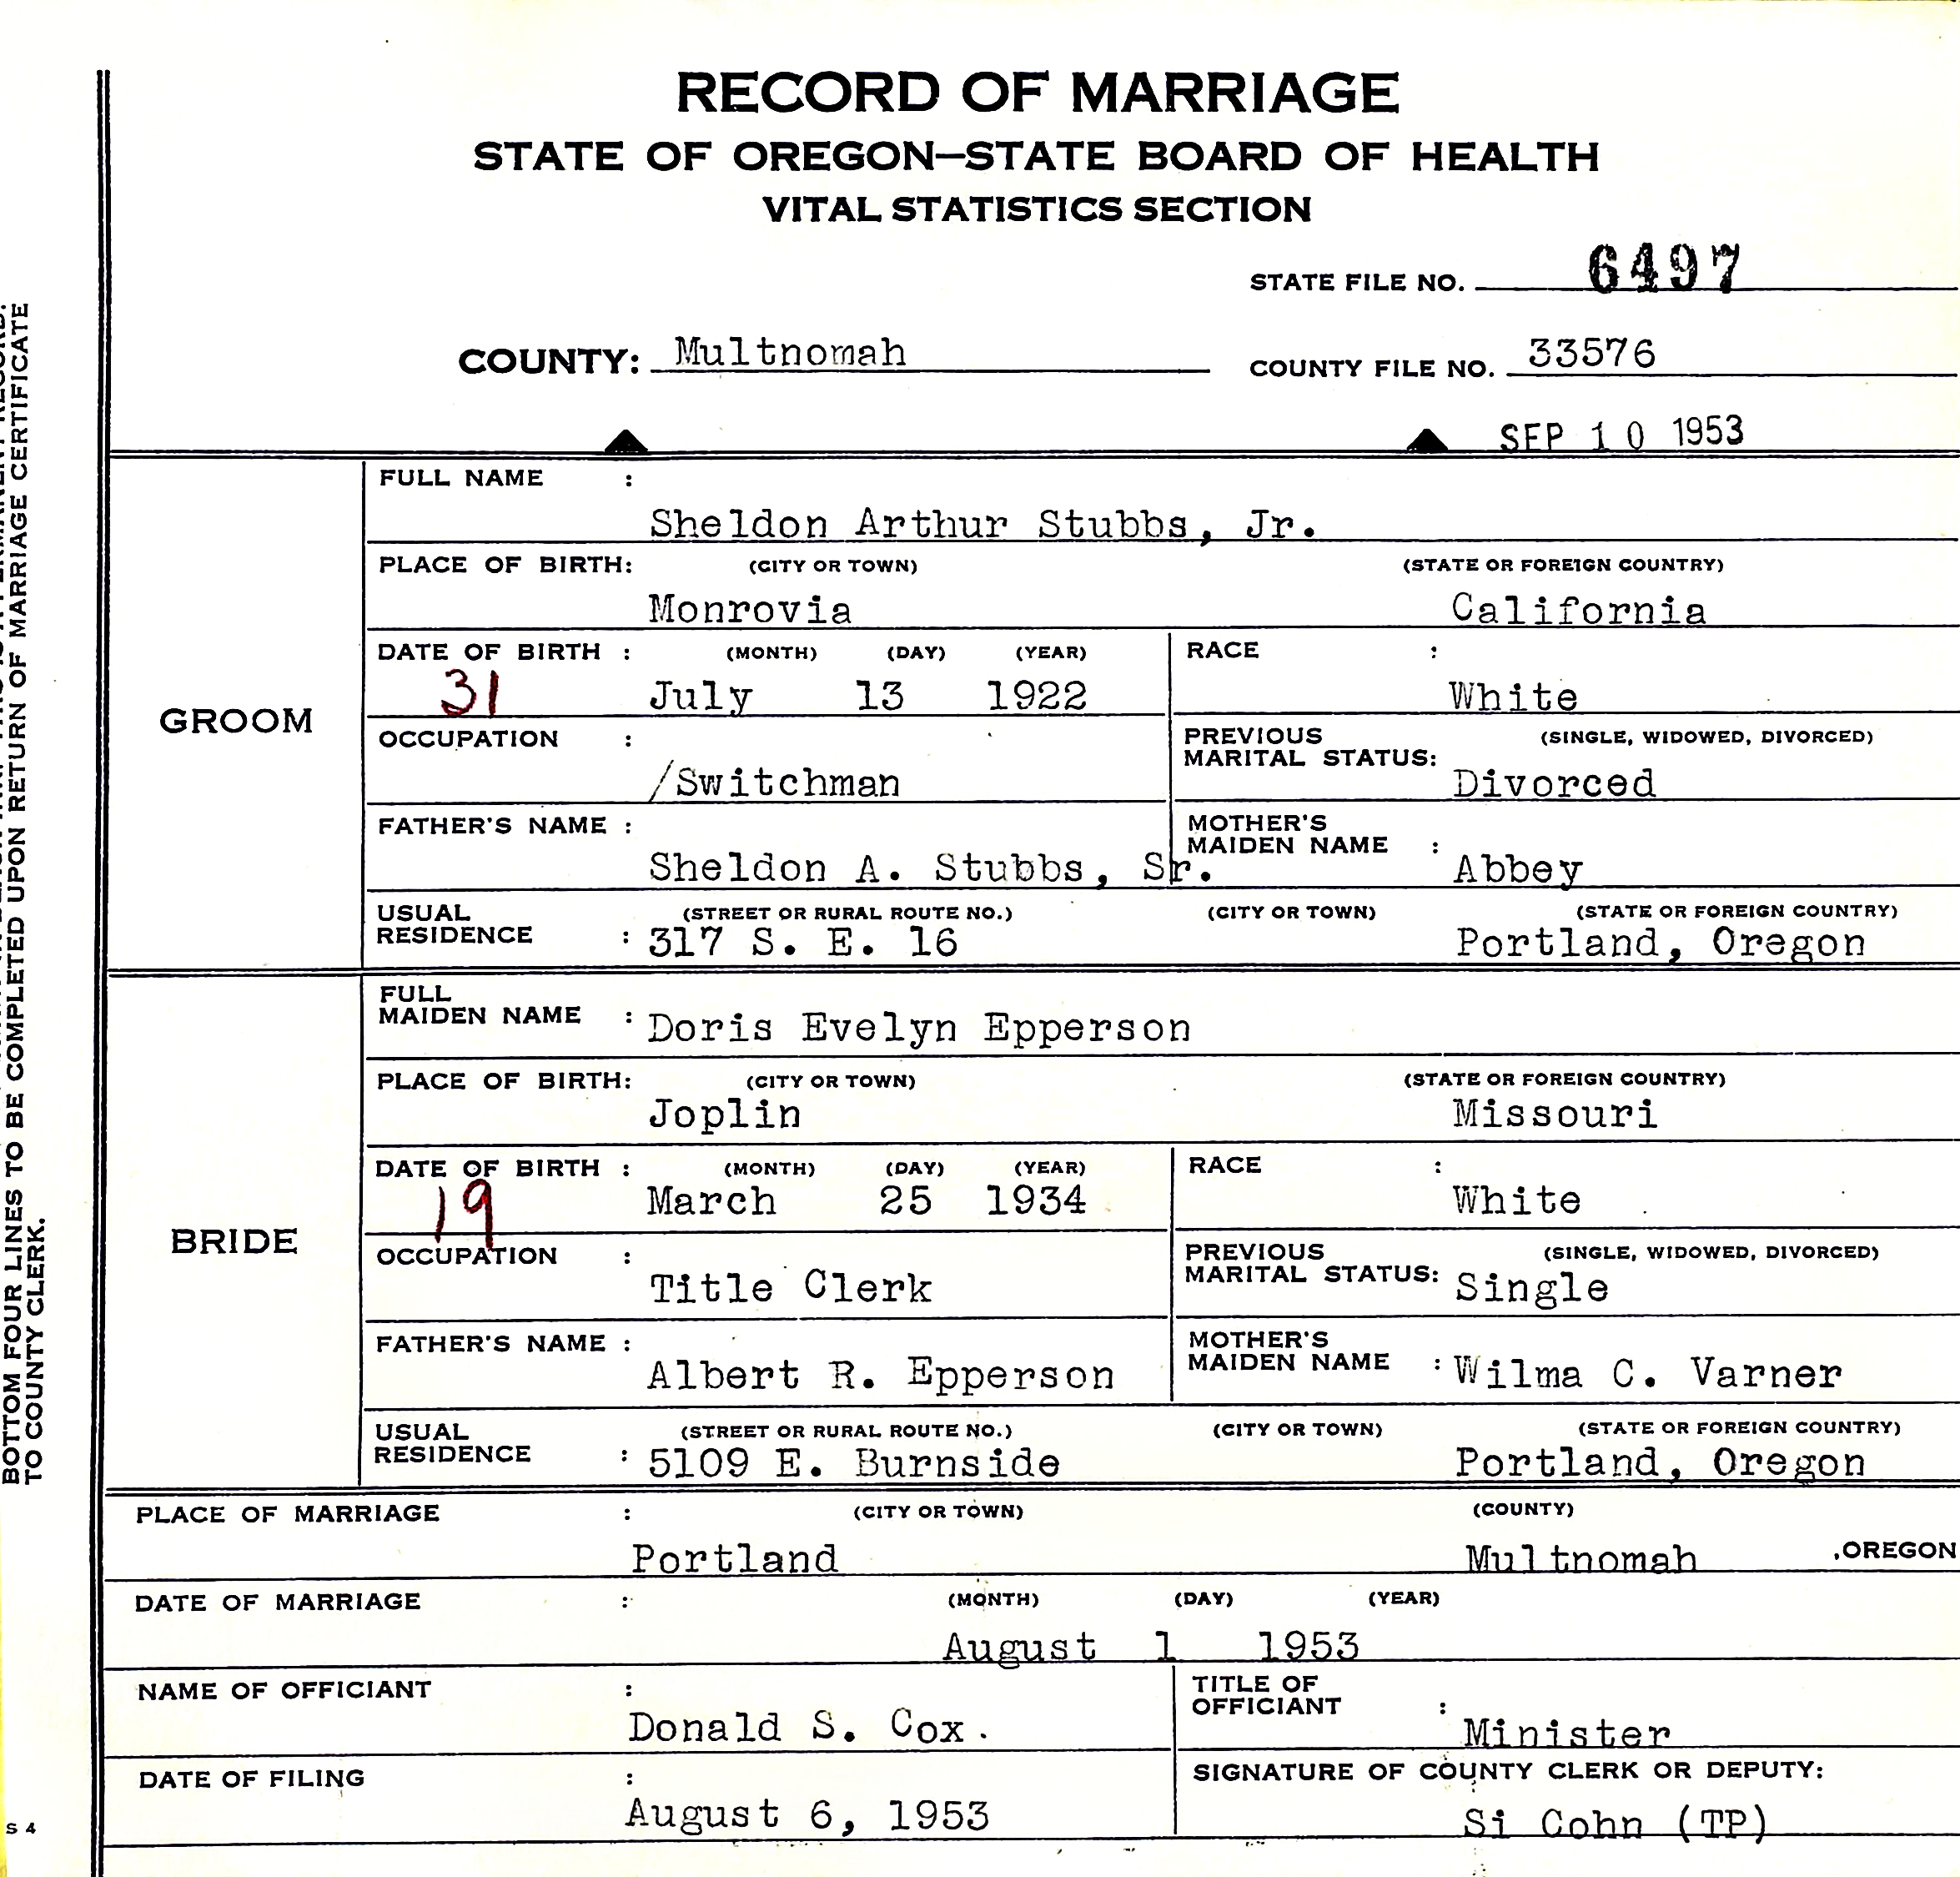 RECORD OF MARRIAGE
STATE OF OREGON—STATE BOARD OF HEALTH
VITAL STATISTICS SECTION
STATE FILE NO. 6497
COUNTY: Multnomah COUNTY FILE NO. 33576
SEP 10 1953
GROOM
FULL NAME :
Sheldon Arthur Stubbs, Jr.
PLACE OF BIRTH: (CITY OR TOWN) (STATE OR FOREIGN COUNTRY)
Monrovia California
DATE OF BIRTH : (MONTH) (DAY) (YEAR) RACE :
31 July 13 1922 White
OCCUPATION : PREVIOUS MARITAL STATUS: (SINGLE, WIDOWED, DIVORCED)
/Switchman Divorced
FATHER'S NAME : MOTHER'S MAIDEN NAME :
Sheldon A. Stubbs, Sr. Abbey
USUAL RESIDENCE : (STREET OR RURAL ROUTE NO.) (CITY OR TOWN) (STATE OR FOREIGN COUNTRY)
317 S. E. 16 Portland, Oregon
BRIDE
FULL MAIDEN NAME : Doris Evelyn Epperson
PLACE OF BIRTH: (CITY OR TOWN) (STATE OR FOREIGN COUNTRY)
Joplin Missouri
DATE OF BIRTH : (MONTH) (DAY) (YEAR) RACE :
19 March 25 1934 White
OCCUPATION : PREVIOUS MARITAL STATUS: (SINGLE, WIDOWED, DIVORCED)
Title Clerk Single
FATHER'S NAME : MOTHER'S MAIDEN NAME :
Albert R. Epperson Wilma C. Varner
USUAL RESIDENCE : (STREET OR RURAL ROUTE NO.) (CITY OR TOWN) (STATE OR FOREIGN COUNTRY)
5109 E. Burnside Portland, Oregon
PLACE OF MARRIAGE : (CITY OR TOWN) (COUNTY)
Portland Multnomah ,OREGON
DATE OF MARRIAGE : (MONTH) (DAY) (YEAR)
August 1 1953
NAME OF OFFICIANT : TITLE OF OFFICIANT :
Donald S. Cox. Minister
DATE OF FILING : SIGNATURE OF COUNTY CLERK OR DEPUTY:
August 6, 1953 Si Cohn (TP)
BOTTOM FOUR LINES TO BE COMPLETED UPON RETURN OF MARRIAGE CERTIFICATE
TO COUNTY CLERK.
S 4